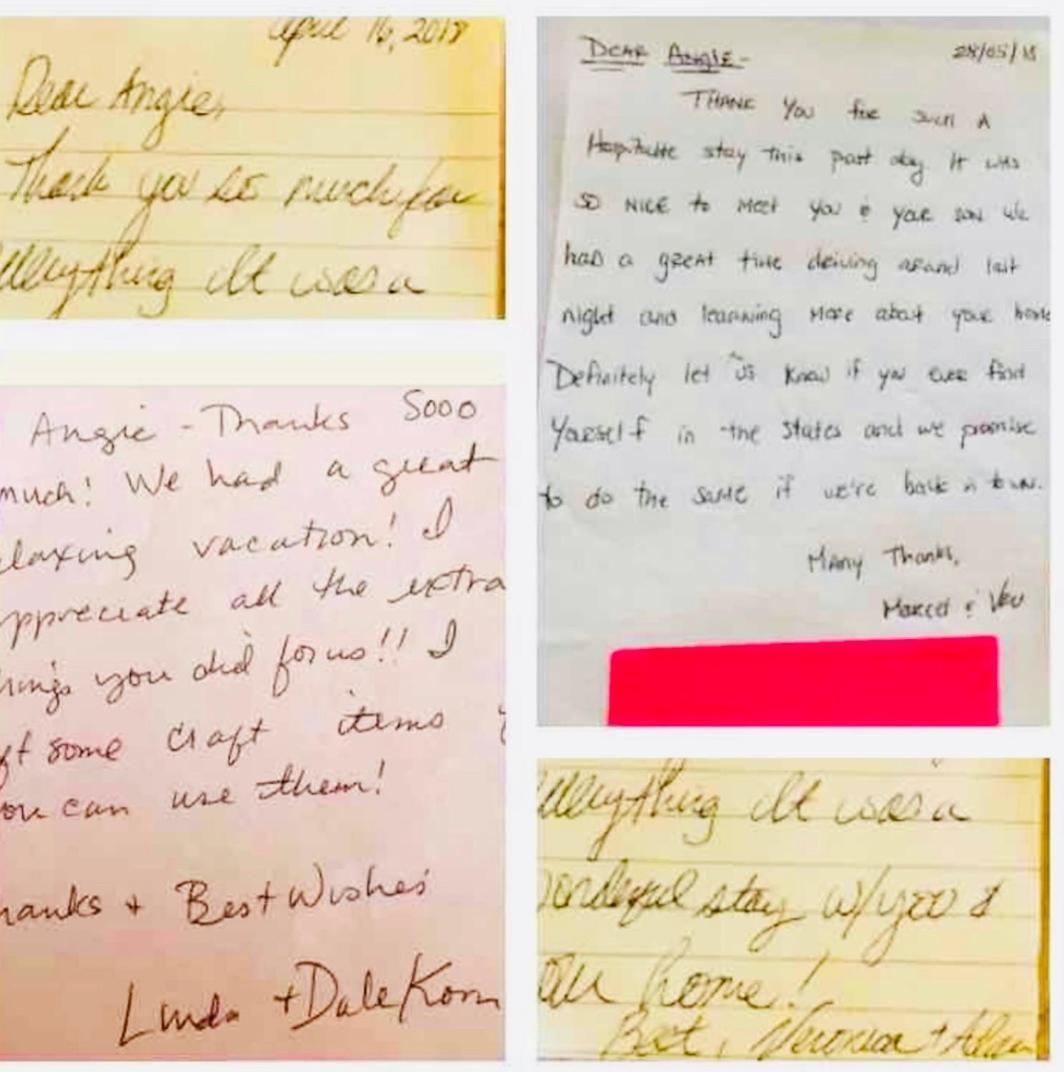 April 16, 2018
Dear Angie,
Thank you so much for
everything It was a
Angie - Thanks Sooo
much! We had a great
elaxing vacation! I
appreciate all the extra
hings you did for us!! I
ft some craft items
ou can use them!
hanks + Best Wishes
Linda + Dale Korn
DEAR ANGIE-
28/05/18
THANK YOU for such A
Hospitable stay this past day It was
SO NICE to Meet you & your son We
had a great time driving around last
night and learning More about your home
Definitely let us know if you ever find
Yourself in the States and we promise
to do the same if we're back in town.
Many Thanks,
Marcel & Vev
everything It was a
onderful stay w/you &
our home!
Best, Veronica + Adam